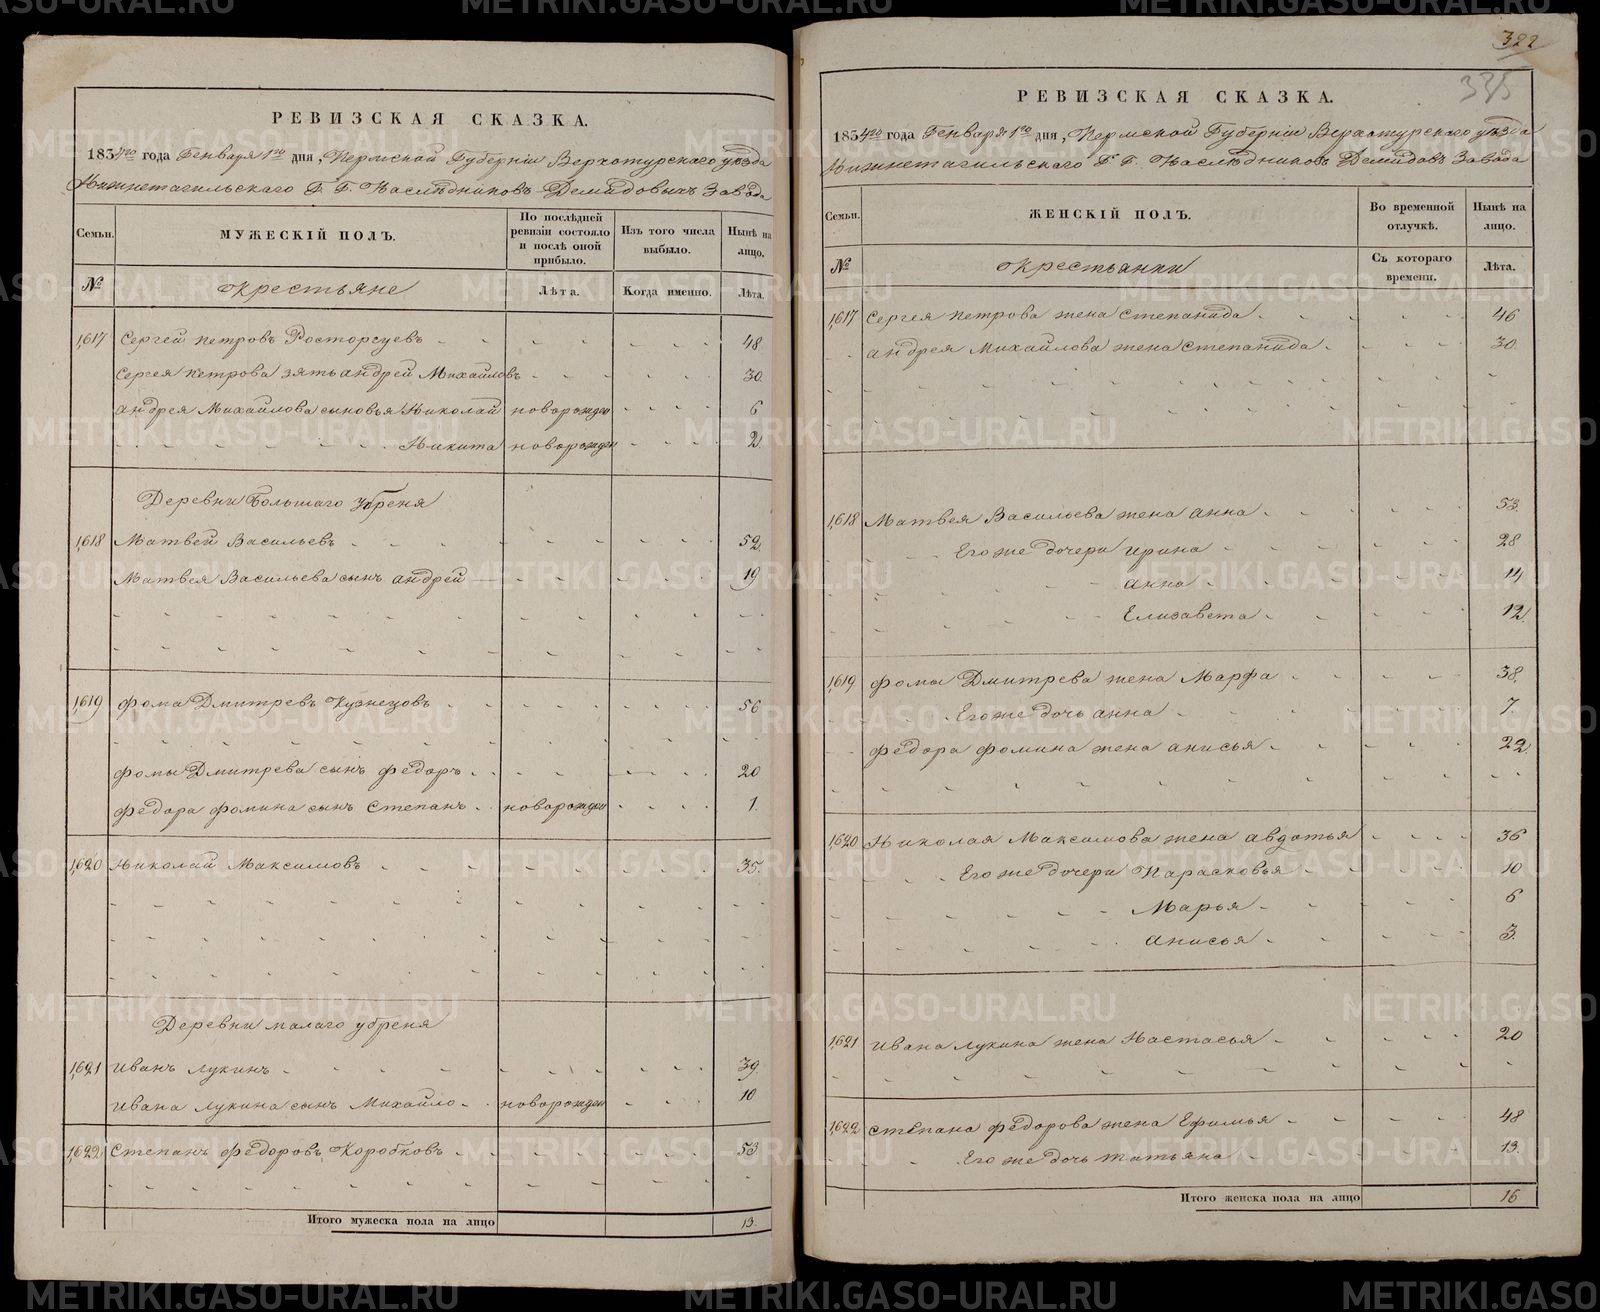 РЕВИЗСКАЯ СКАЗКА.
1834го года Генваря 1го дня, Пермской Губернiи Верхотурскаго уѣзда
Нижнетагильскаго Г. Г. Наслѣдниковъ Демидовыхъ Завода
Семьи.
МУЖЕСКIЙ ПОЛЪ.
По послѣдней ревизiи состояло и послѣ оной прибыло.
Изъ того числа выбыло.
Нынѣ на лицо.
№
Крестьяне
Лѣта.
Когда именно.
Лѣта.
1617 Сергей Петровъ Расторгуевъ 48
Сергея Петрова зять Андрей Михайловъ 30.
Андрея Михайлова сыновья Николай новорожден 6
Никита новорожден 2.
Деревни Большаго Убреня
1618 Матвей Васильевъ 52.
Матвея Васильева сынъ Андрей 19
1619 Фома Дмитревъ Кузнецовъ 56
Фомы Дмитрева сынъ Федоръ 20
Федора Фомина сынъ Степанъ новорожден 1.
1620 Николай Максимовъ 35.
Деревни Малаго Убреня
1621 Иванъ Лукинъ 39.
Ивана Лукина сынъ Михайло новорожден 10
1622 Степанъ Федоровъ Коробковъ 53
Итого мужеска пола на лицо 13.
322
335
РЕВИЗСКАЯ СКАЗКА.
1834го года Генваря 1го дня, Пермской Губернiи Верхотурскаго уѣзда
Нижнетагильскаго Г. Г. Наслѣдниковъ Демидовъ Завода
Семьи.
ЖЕНСКIЙ ПОЛЪ.
Во временной отлучкѣ.
Нынѣ на лицо.
№
Крестьянки
Съ котораго времени.
Лѣта.
1617 Сергея Петрова жена Степанида 46
Андрея Михайлова жена Степанида 30.
1618 Матвея Васильева жена Анна 53.
Его же дочери Ирина 28
Анна 14
Елизавета 12.
1619 Фомы Дмитрева жена Марфа 38.
Его же дочь Анна 7.
Федора Фомина жена Анисья 22.
1620 Николая Максимова жена Авдотья 36
Его же дочери Парасковья 10
Марья 6
Анисья 3.
1621 Ивана Лукина жена Настасья 20
1622 Степана Федорова жена Ефимья 48
Его же дочь Татьяна 13.
Итого женска пола на лицо 16
METRIKI.GASO-URAL.RU